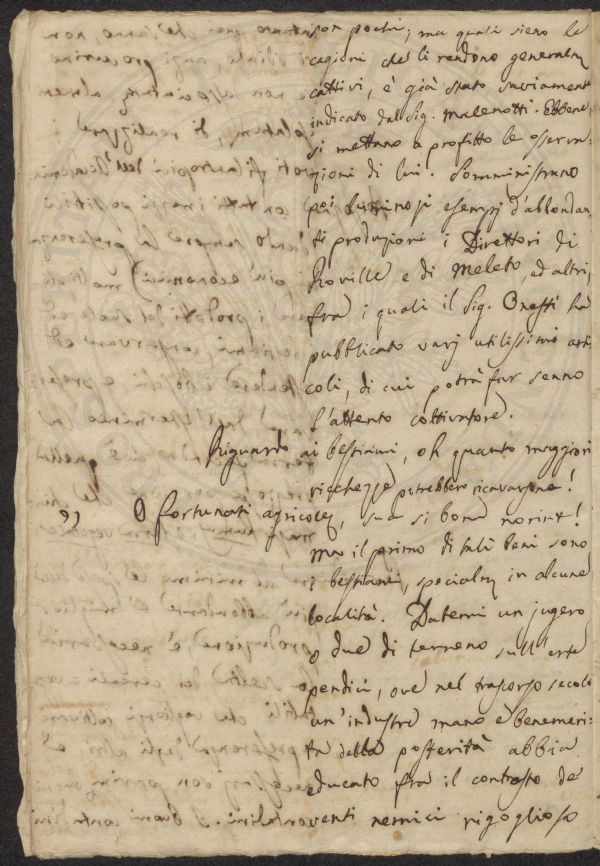 son pochi; ma quali sieno le
cagioni che li rendono generalm
cattivi, è già stato saviamente
indicato dal Sig. Malenotti. Ebbene,
si mettano a profitto le osserva-
zioni di lui. Somministrano
poi luminosi esempj d'abbondan-
ti produzioni i Direttori di
Roville e di Meleto, ed altri,
fra i quali il Sig. Onesti ha
pubblicato varj utilissimi arti
coli, di cui potrà far senno
l'attento coltivatore.
Riguardo ai bestiami, oh quanto maggiori
ricchezze potrebbero ricavarsene!
„ O fortunati agricolae, sua si bona norint!
Ma il primo di tali beni sono
i bestiami, specialm in alcune
località. Datemi un jugero
o due di terreno sull'erte
pendici, ove nel trascorso secolo
un'industre mano e benemeri-
ta della posterità abbia
educato fra il contrasto de'
venti nemici rigoglioso